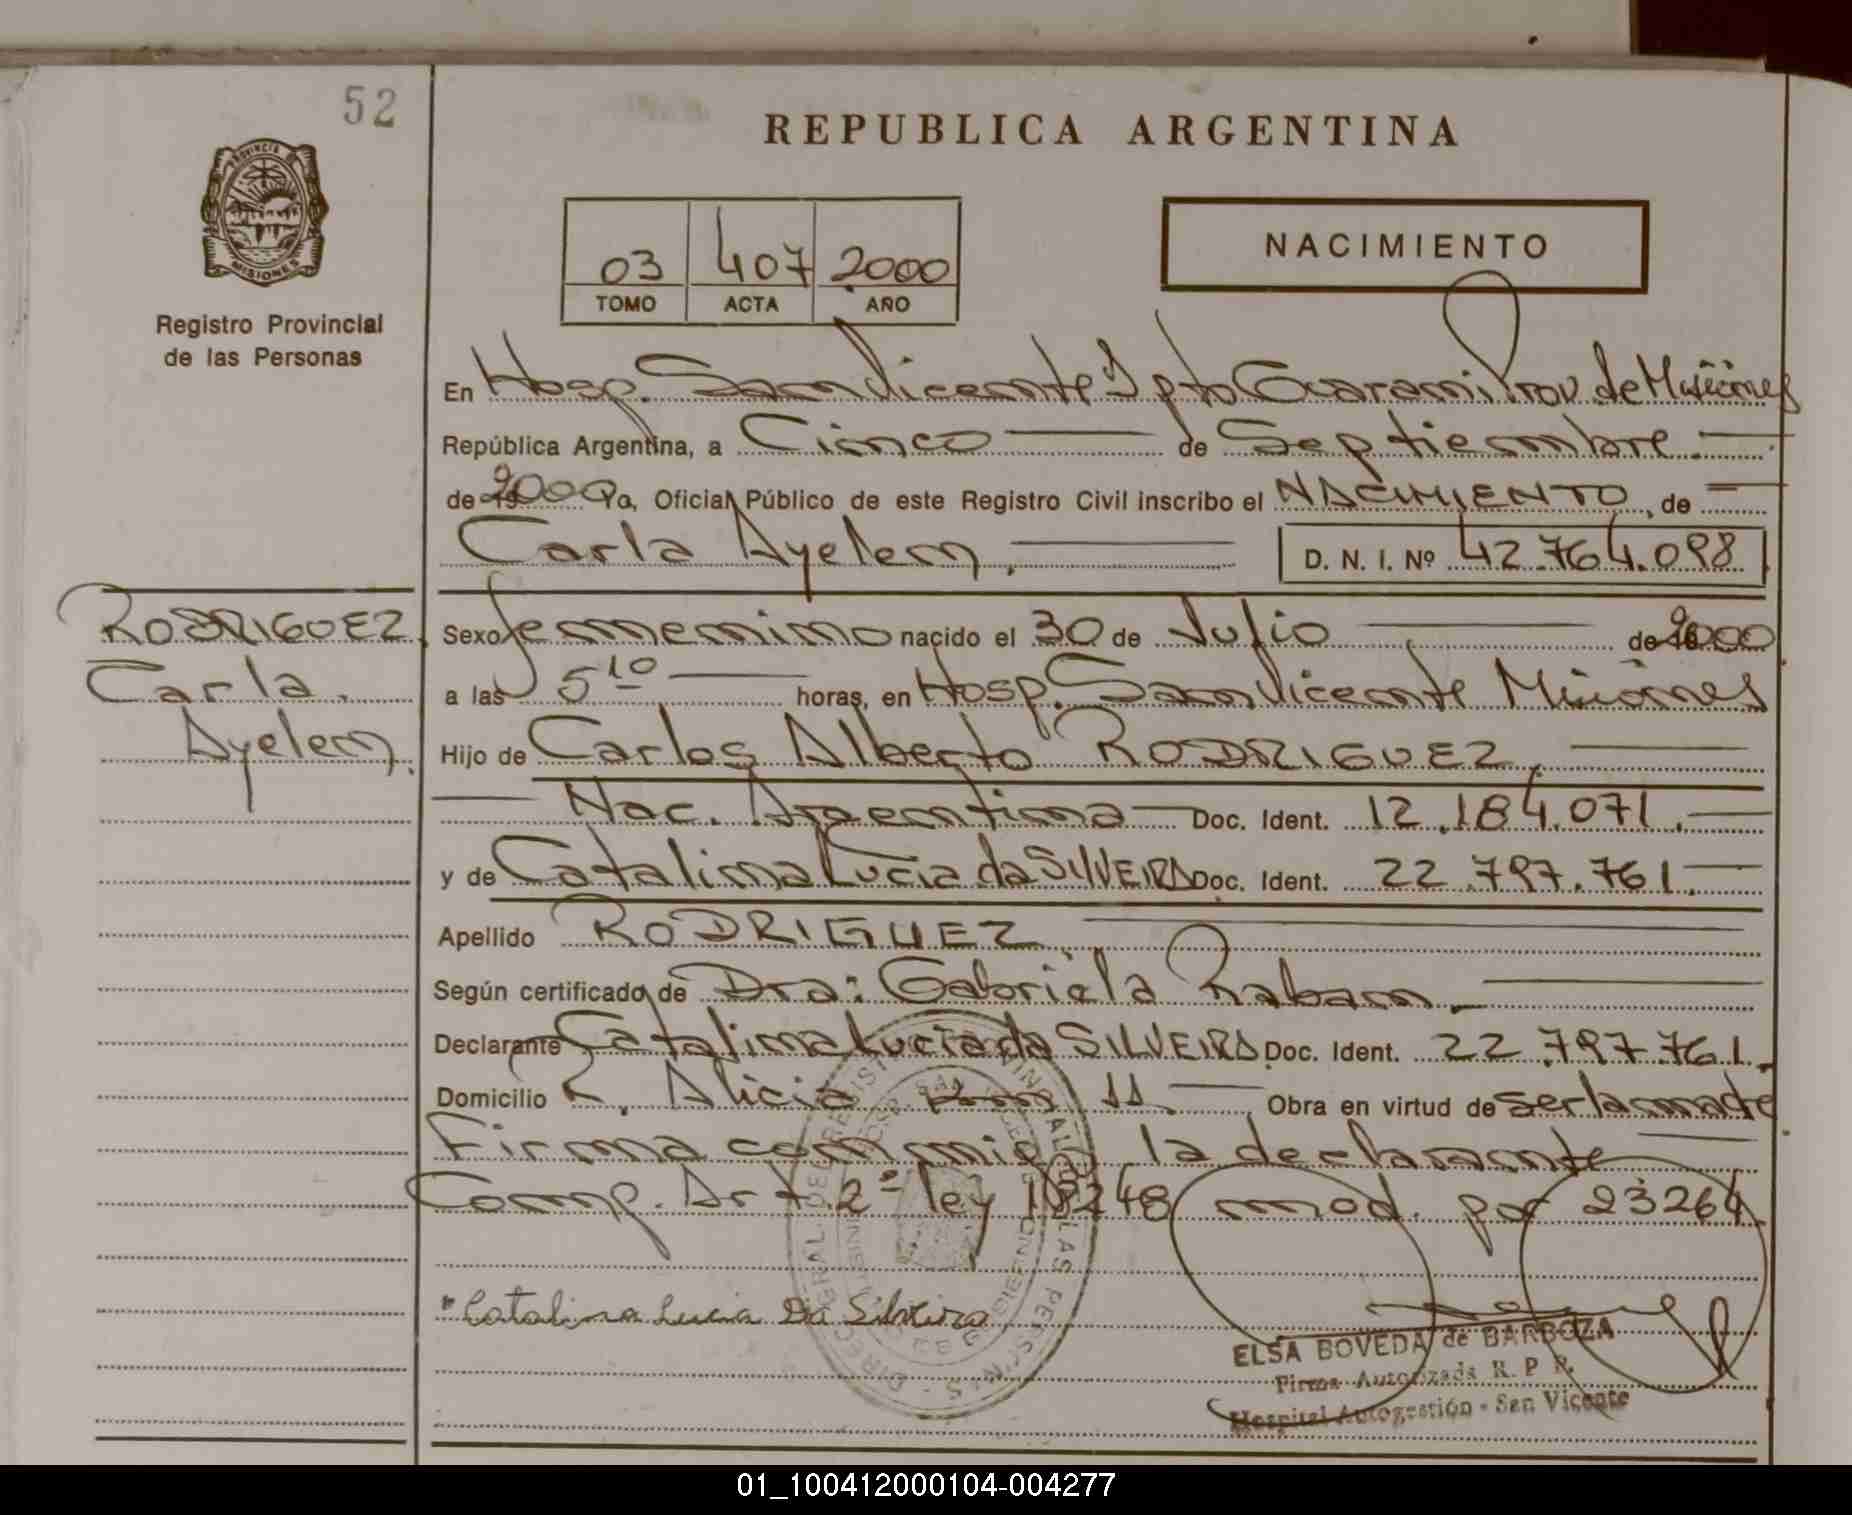 52
REPUBLICA ARGENTINA
PROVINCIA DE
MISIONES
Registro Provincial
de las Personas
03 407 2000
TOMO ACTA AÑO
NACIMIENTO
En Hosp. San Vicente Dpto Guarani Prov. de Misiones
República Argentina, a Cinco de Septiembre.
de 19 2000 Yo, Oficial Público de este Registro Civil inscribo el NACIMIENTO, de
Carla Ayelen. D. N. I. Nº 42.764.098
RODRIGUEZ.
Carla.
Ayelen.
Sexo femenino nacido el 30 de Julio de 19 2000
a las 5 10 horas, en Hosp. San Vicente Misiones
Hijo de Carlos Alberto RODRIGUEZ.
Nac. Argentina Doc. Ident. 12.184.071.
y de Catalina Lucia da SILVEIRA Doc. Ident. 22.797.761.
Apellido RODRIGUEZ
Según certificado de Dra: Gabriela Raban.
Declarante Catalina Lucia da SILVEIRA Doc. Ident. 22.797.761.
Domicilio R. Alicia 11. Obra en virtud de ser la madre
Firma conmigo la declarante
Comp. Art 2º ley 18248 mod. por 23264
Catalina Lucia Da Silveira
ELSA BOVEDA de BARBOZA
Firma Autorizada R. P. P.
Hospital Autogestión - San Vicente
01_100412000104-004277